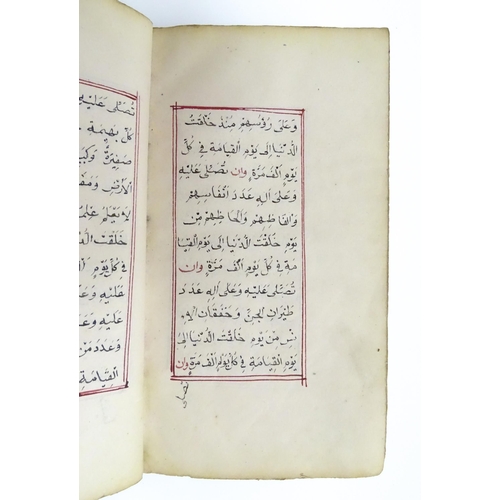 وَعَلَى رُؤسِهِم مُنذُ خَلَقتَ
الدُنيَا إِلى يَومِ القِيَامَةِ فِي كُلِّ
يَومٍ اَلفَ مَرَّةٍ وان تُصَلِّى عَلَيهِ
وَعَلى الِهِ عَدَدَ اَنفَاسِهِم
وَاَلفَاظِهِم وَاَلحَاظِهِم مِن
يَومِ خَلَقتَ الدُنيَا اِلى يَومِ القِيَا
مَةِ فِي كُلِّ يَومٍ اَلفَ مَرَّةٍ وان
تُصَلِّى عَلَيهِ وَعَلى الِهِ عَدَدَ
طَيَرانِ الجِنِّ وَخَفَقَانِ الاِ
نسِ مِن يَومِ خَلَقتَ الدُنيَا اِلى
يَومِ القِيَامَةِ فِي كُلِّ يَومٍ اَلفَ مَرَّةٍ وان
تصلى
تُصَلِّى عَلَيهِ
كُلِّ بَهِيمَةٍ
صَغِيرَةٍ
الاَرضِ
خَلَقتَ
فِي كُلِّ يَومٍ
عَلَيهِ وَعَ
عَلَيهِ وَعَ
وَعَدَدَ مَن
القِيَامَةِ